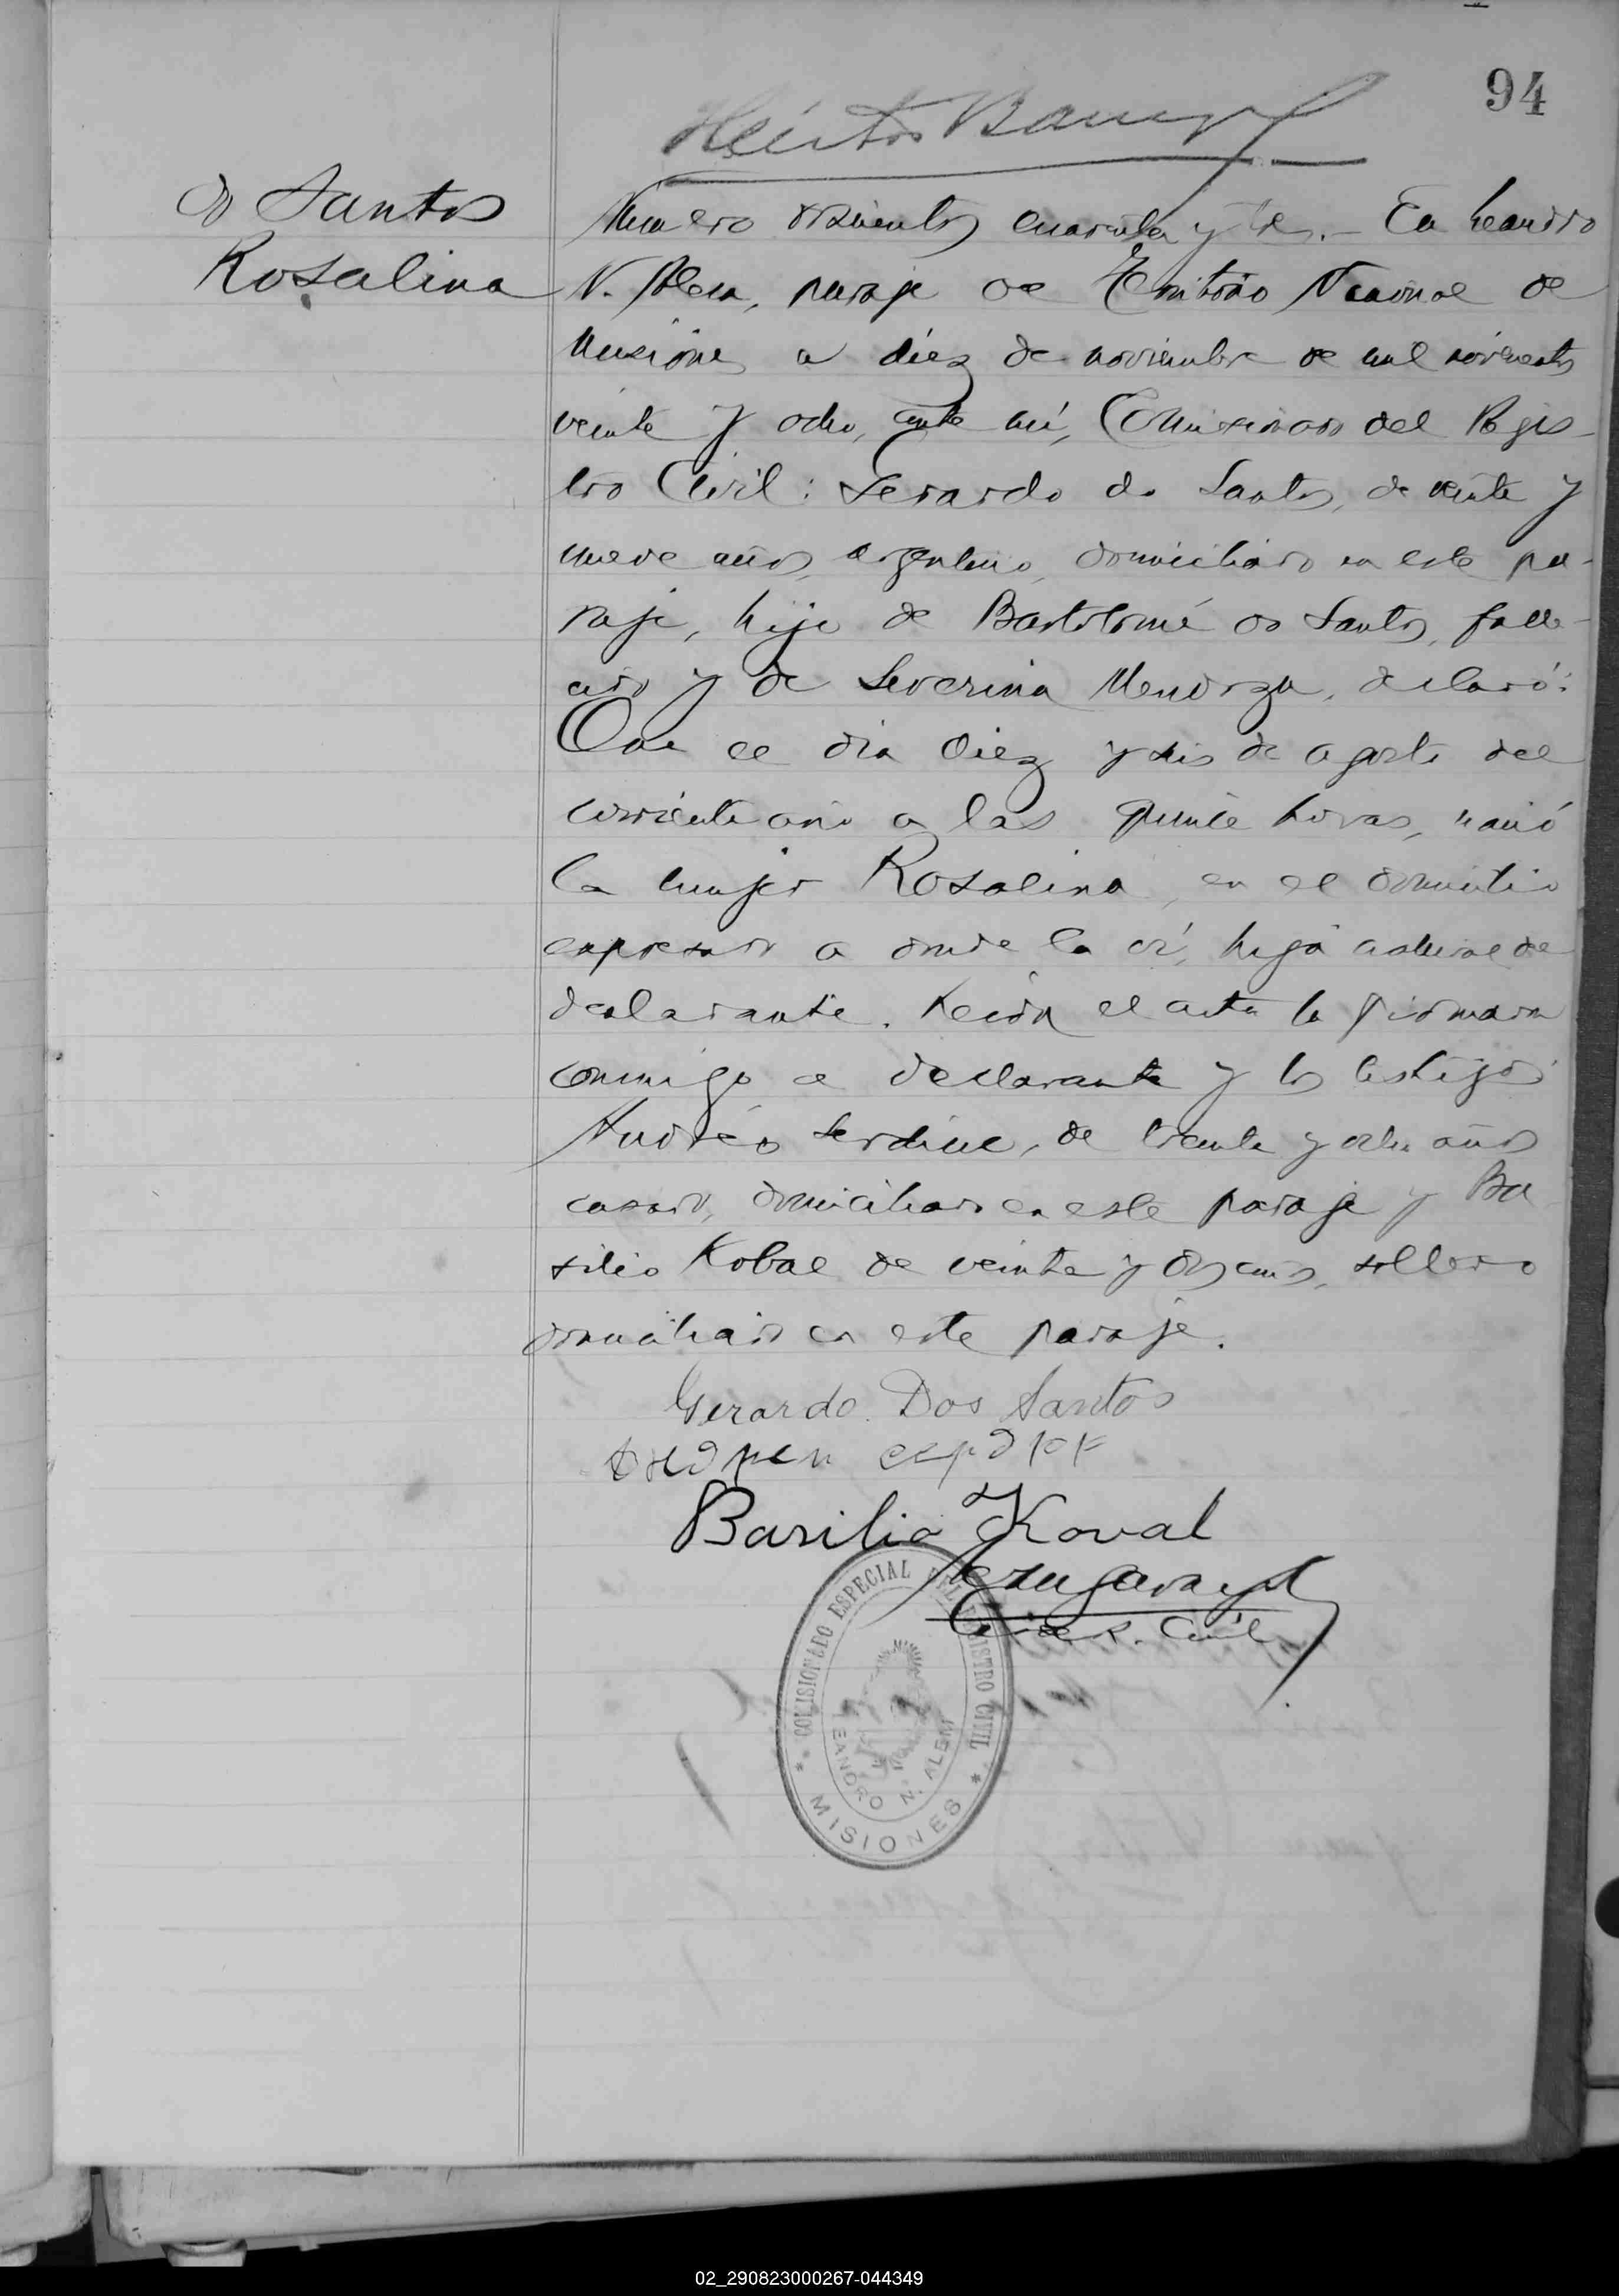 94
Héctor
do Santos
Rosalina
Número doscientos cuarenta y tres.- En Leandro
N. Alem, paraje de Territorio Nacional de
Misiones a diez de noviembre de mil novecientos
veinte y ocho, ante mí, Comisionado del Regis-
tro Civil: Gerardo do Santos, de veinte y
nueve años, argentino, domiciliado en este pa-
raje, hijo de Bartolomé do Santos, falle-
cido y de Severina Mendoza, declaró:
Que el día diez y seis de agosto del
corriente año a las quince horas, nació
la mujer Rosalina, en el domicilio
expresado a donde la ví, hija natural de
declarante. Leída el acta la firmaron
conmigo el declarante y los testigos
Andrés de treinta y ocho años
casado, domiciliado en este paraje y Ba-
silio Kobal de veinte y dos años, soltero
domiciliado en este paraje.
Gerardo Dos Santos
Basilio Koval
R. Civil
COMISIONADO ESPECIAL DEL REGISTRO CIVIL
LEANDRO N. ALEM
* MISIONES *
02_290823000267-044349